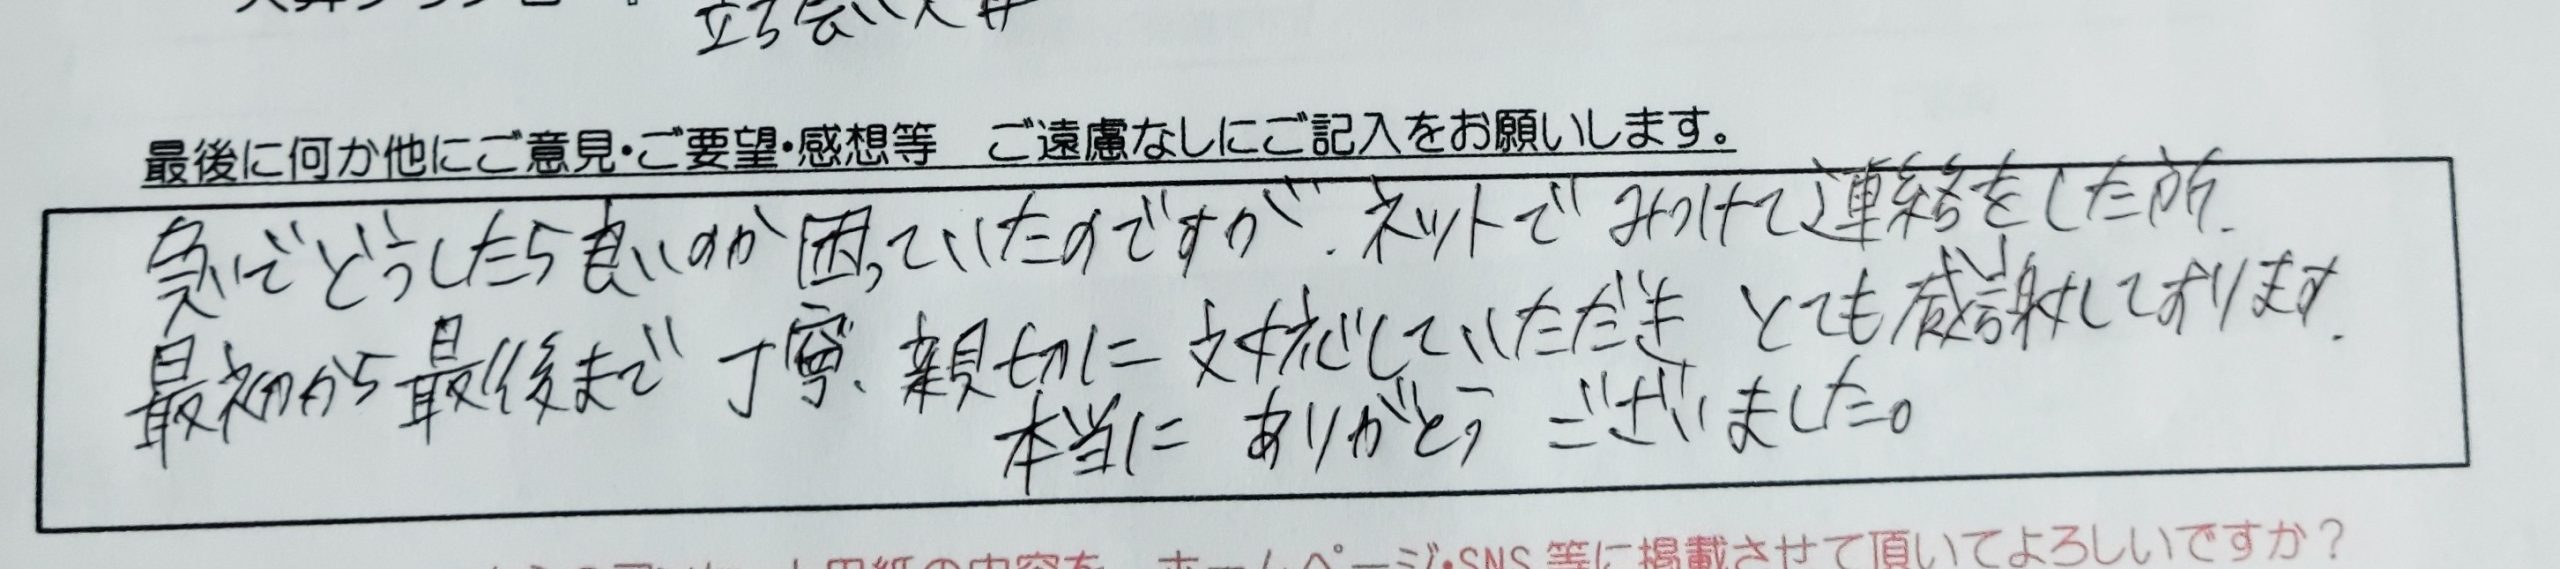 立ち会い火葬
最後に何か他にご意見・ご要望・感想等　ご遠慮なしにご記入をお願いします。
急でどうしたら良いのか困っていたのですが、ネットでみつけて連絡をした所、
最初から最後まで丁寧、親切に対応していただき とても感謝しております。
本当に ありがとう ございました。
用紙の内容を、ホームページ・SNS等に掲載させて頂いてよろしいですか？